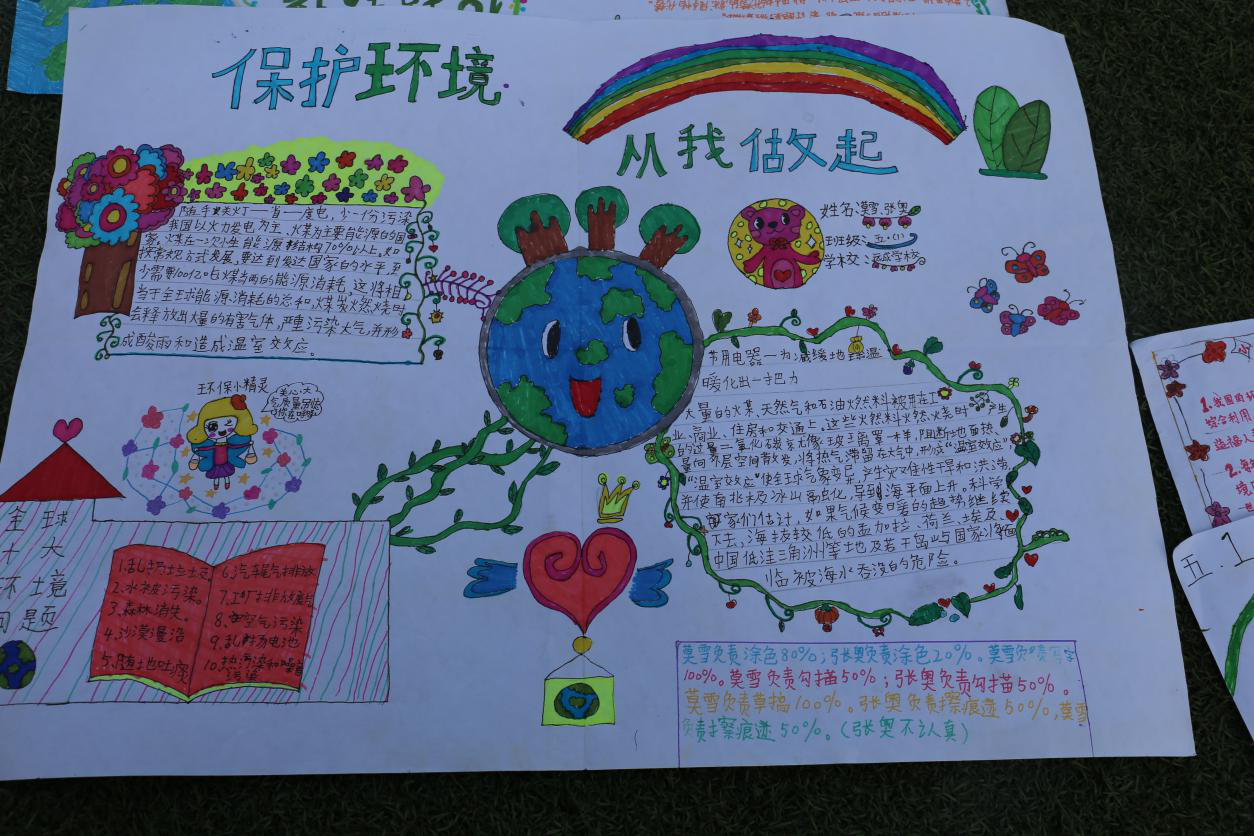 保护环境
从我做起
随手关灯一省一度电,少一份污染
我国以火力发电为主、火煤为主要能源的国
家。火煤在一次性能源结构70%以上。如
按常规方式发展,要达到发达国家的水平,至
少需要100亿吨煤当两的能源消耗,这将相
当于全球能源消耗的总和,煤炭火燃烧时
会释放出大量的有害气体,严重污染大气,并形
成酸雨和造成温室效应。
姓名:莫雪、张奥
班级:五·(1)
学校:
环保小精灵
关心大
气质量
全球
十大
环境
问题
1.乱扔垃圾
2.水被污染。
3.森林消失。
4.沙漠漫沿
5.随地吐痰
6.汽车尾气排放
7.工厂排放废气
8.空气污染
9.乱扔电池
10.热污染和噪音
污染
节用电器一为减缓地球温
暖化出一把力
大量的火煤、天然气和石油燃料被用在工
业、商业、住房和交通上。这些火燃料火燃烧时产生
的过量二氧化碳就像玻璃罩一样,阻断地面热
量向外层空间散发,将热气滞留在大气中,形成“温室效应”
“温室效应”使全球气象变异,产生灾难性干旱和洪涝,
并使南北极冰山融化,导致海平面上升。科学
家们估计,如果气候变暖的趋势继续
下去,海拔较低的孟加拉、荷兰、埃及、
中国低洼三角洲等地及若干岛屿国家将面
临被海水吞没的危险。
莫雪负责涂色80%;张奥负责涂色20%。莫雪负责写字
100%。莫雪负责勾描50%;张奥负责勾描50%。
莫雪负责草搞100%。张奥负责擦痕迹50%,莫雪
负责擦痕迹50%。(张奥不认真)
五.1